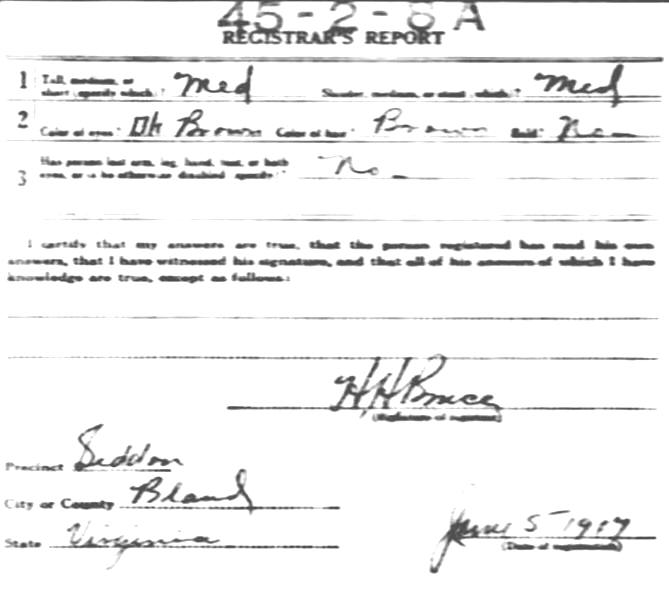 45-2-8 A
REGISTRAR'S REPORT
1 Tall, medium, or short (specify which)? Med Slender, medium, or stout, which? Med
2 Color of eyes? Dk Brown Color of hair? Brown Bald? No
3 Has person lost arm, leg, hand, foot, or both eyes, or is he otherwise disabled (specify)? No
I certify that my answers are true, that the person registered has read his own
answers, that I have witnessed his signature, and that all of his answers of which I have
knowledge are true, except as follows:
H H Bruce
(Signature of registrar)
Precinct Seddon
City or County Bland
State Virginia
June 5 1917
(Date of registration)